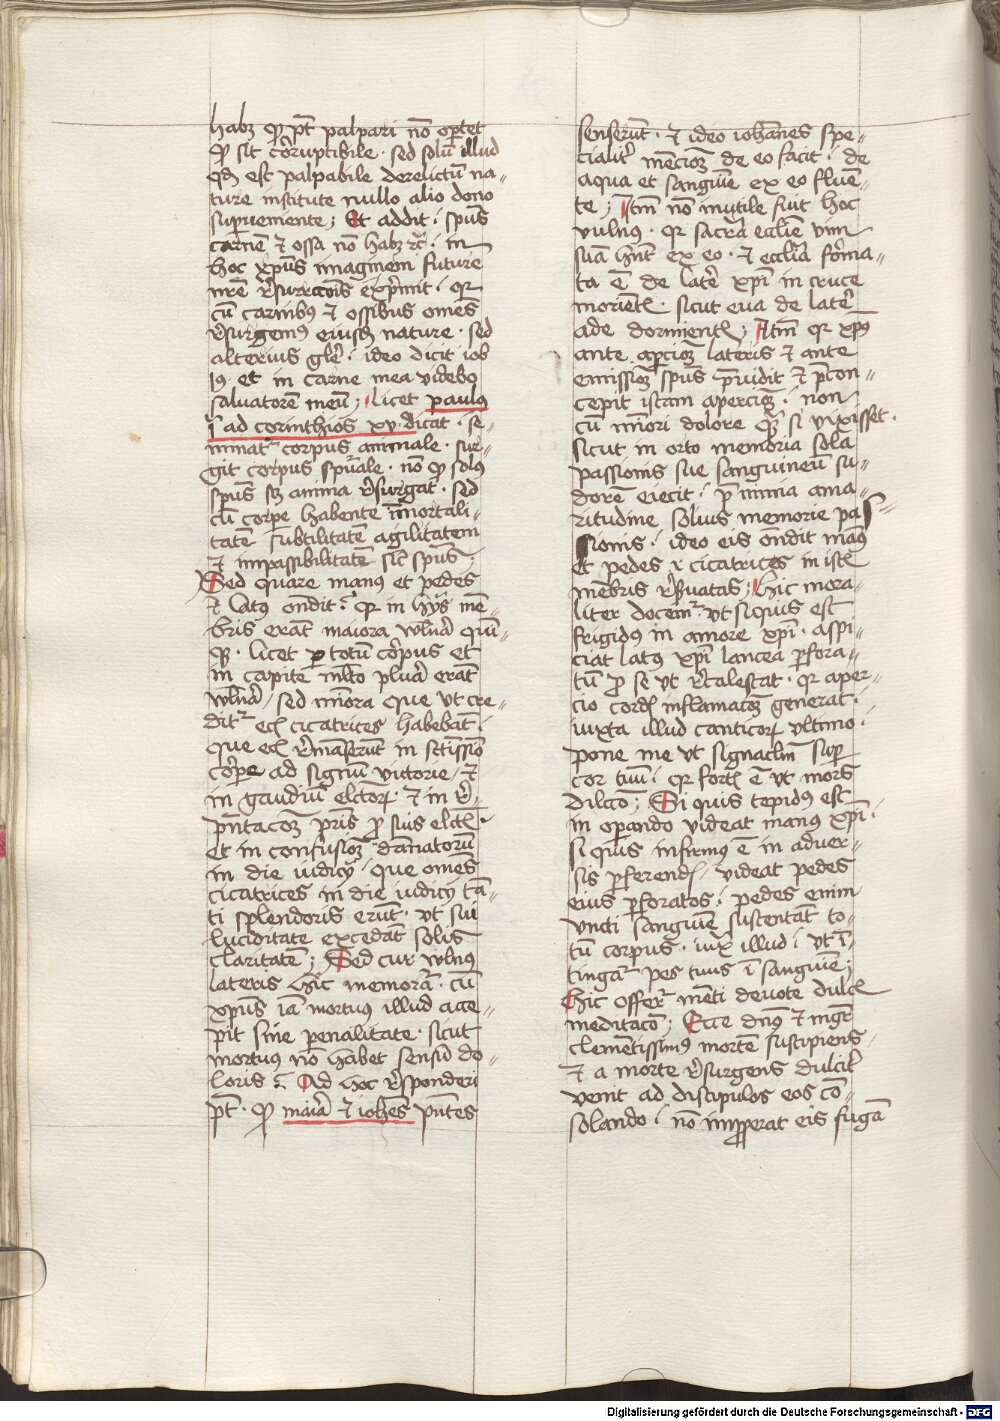 habꝫ qͥ pt̄ palpari nō oportet
qͥ sit corruptibile · sed solū illud
qd̄ est palpabile derelictū na-
ture institute nullo alio dono
superueniente ; Et addit · spūs
carnē ⁊ ossa nō habꝫ rc̄ · in
hoc xp̄us imaginem future
nrē rēsurrccōīs exprimit · qꝛ
cū carnibꝰ ⁊ ossibus omēs
rēsurgemꝰ eiusdē nature · sed
alterius glē · ideo dicit iob
19 · et in carne mea videbo
saluatorē meū ; licet paulus
ī ad corinthios xv · dicat · se-
minatᷣ corpus animale · sur-
git corpus spūale · nō qͥ solus
spūs sꝫ anima rēsurgat · sed
cū corpe habente īmortali-
tatē subtilitatē agilitatem
⁊ impassibilitatē sic̄ spūs ;
Sed quare manꝰ et pedes
⁊ latꝰ ondit · qꝛ in hijs mē-
bris erāt maiora vulnā quī-
qꝫ · licet per totū corpus et
in capite mlto plura erāt
vulnā / sed minora que vt cre-
ditᷣ ecī cicatrices habebāt ·
que ecī rēmāserūt in sctissīo
corpe ad signū victorie / ⁊
in gaudiū elctorꝝ · ⁊ in rē-
pn̄tacōꝫ pris pro suis elctꝭ ·
et in confusiōꝫ dānatorū
in die iudicij · que omēs
cicatrices in die iudicij tā-
ti splendoris erūt · vt sui
luciditate excedāt solis
claritatē ; Sed cur vulnꝰ
lateris hic memorāt · cū
xp̄us iā mortuus illud acce-
pit sine penalitate · sicut
mortuus nō habet sensū do-
loris · Ad hoc rēsponderi
pt̄ · qͥ maīa ⁊ iohēs pn̄tes
senserūt · ⁊ ideo iohānes spe-
cialitē mēciōꝫ de eo facit · de
aqua et sanguīe ex eo fluē-
te ; Itm̄ nō inutile fuit hoc
vulnꝰ · qꝛ sacrā ecclīe vim
suā hn̄t ex eo · ⁊ ecclīa forma-
ta ē de latē xpī in cruce
moriētꝭ · sicut eua de latē
ade dormientꝭ ; Itm̄ qꝛ xp̄us
ante apciōꝫ lateris ⁊ ante
emissiōꝫ spūs p̄uidit ⁊ p̄con-
cepit istam aperciōꝫ · non
cū mīori dolore qͣꝫ si vixisset ·
sicut in orto memoria sola
passionis sue sanguineū su-
dorē eiecit · p̄ nimia ama-
ritudine solius memorie pas-
sionis · ideo eis ondit manꝰ
et pedes ⁊ cicatrices in istꝭ
mēbris rēseruatas ; hic mora-
liter docemᷣ · vt si quis est
frigidus in amore xpī · aspi-
ciat latꝰ xpī lancea perfora-
tū pro se vt rēcalescat · qꝛ aper-
cio cordꝭ inflamacōꝫ generat ·
iuxta illud canticorꝝ vltimo ·
pone me vt signaclm̄ super
cor tuū · qꝛ fortꝭ ē vt mors
dilctō ; Si quis tepidus est
in operando videat manꝰ xpī ·
si quis infirmus ē in aduer-
sis perferendꝭ / videat pedes
eius perforatos · pedes enim
vncti sanguīe sustentāt to-
tū corpus · iux̄ illud · vt ī-
tingatᷣ pes tuus ī sanguīe ;
hic offertᷣ mēti deuote dulcꝭ
meditacō ; Ecce dn̄s ⁊ mgr̄
clementissimꝰ mortē suscipiens
⁊ a morte rēsurgens dulcitē
venit ad discipulos eos cō-
solando · nō improperat eis fugā
Digitalisierung gefördert durch die Deutsche Forschungsgemeinschaft - DFG